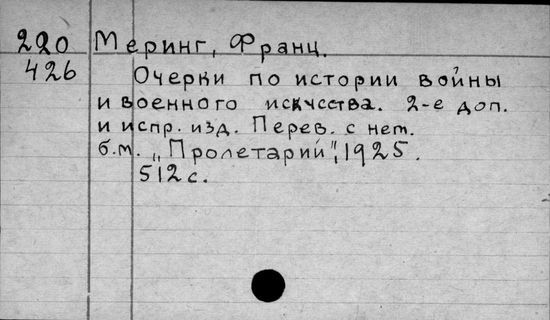 220 Меринг, Франц.
426 Очерки по истории войны
и военного искусства. 2-е доп.
и испр. изд. Перев. с нем.
б.м. „Пролетарий", 1925.
512 с.